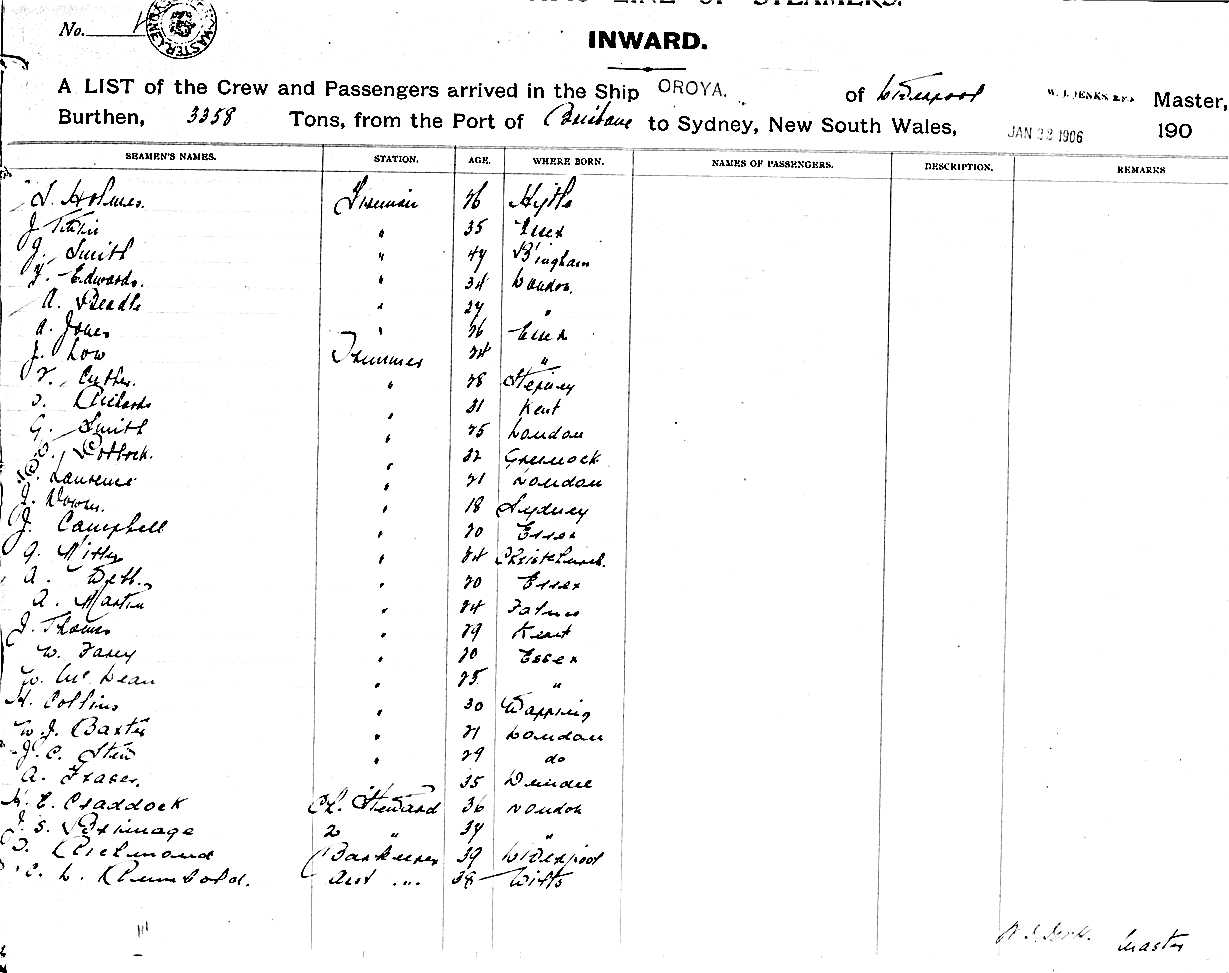 LINE OF STEAMERS.
No.
INWARD.
A LIST of the Crew and Passengers arrived in the Ship OROYA. of Liverpool W. J. JENKS Master,
Burthen, 3358 Tons, from the Port of Brisbane to Sydney, New South Wales, JAN 22 1906 190
SEAMEN'S NAMES. STATION. AGE. WHERE BORN. NAMES OF PASSENGERS. DESCRIPTION. REMARKS
Holmes. Fireman 26 Hythe
J. " 35 Essex
J. Smith " 47 Bingham
Edwards. " 34 London.
A. Beadle " 27 "
A. Jones " 26 Essex
J. Low Trimmer 24 "
" 28 Stepney
Richards " 31 Kent
G. Smith " 25 London
Pollock. " 32 Greenock
Laurence " 21 London
" 18 Sydney
J. Campbell " 20 Essex
G. " 24 Christchurch.
A. " 20 Essex
A. Martin " 24
J. Thomas " 29 Kent
W. Farey " 20 Essex
W. McLean " 25 "
H. Collins " 30 Wapping
W. J. Baxter " 21 London
J. C. " 29 do
A. Fraser. 35 Dundee
H. E. Craddock Ch. Steward 36 London
J. S. Perimage 2 " 34 "
Richmond Barkeeper 39 Liverpool
C. L. Rumbold. Asst " 38 Wilts
W. J. Jenks. Master